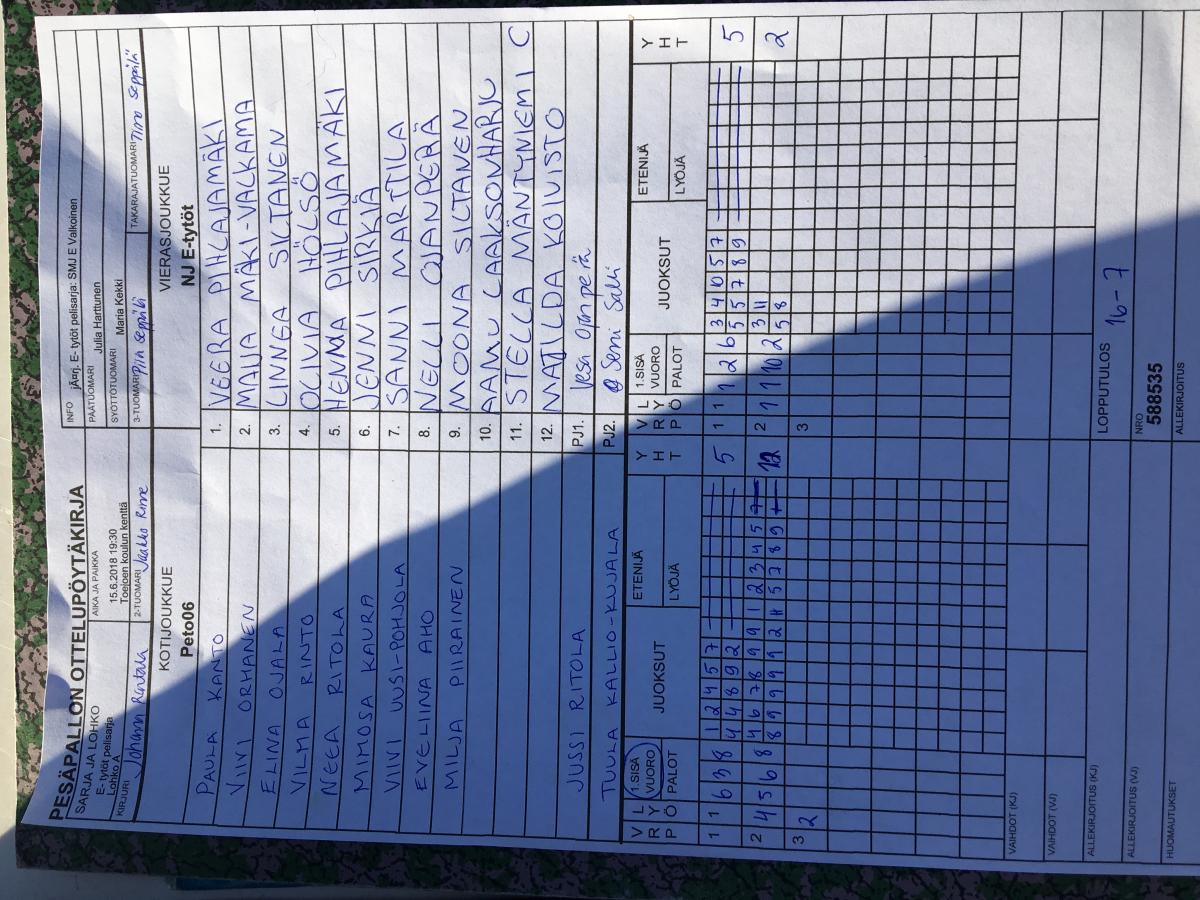 PESÄPALLON OTTELUPÖYTÄKIRJA
SARJA JA LOHKO
E- tytöt pelisarja
Lohko A
AIKA JA PAIKKA
15.6.2018 19:30
Toejoen koulun kenttä
INFO jÄ¤rj. E- tytöt pelisarja: SMJ E Valkoinen
PÄÄTUOMARI Julia Harttunen
SYÖTTÖTUOMARI Maria Kekki
KIRJURI Johanna Rintala
2-TUOMARI Jaakko Rinne
3-TUOMARI Piia Seppälä
TAKARAJATUOMARI Timo Seppälä
KOTIJOUKKUE
Peto06
VIERASJOUKKUE
NJ E-tytöt
PAULA KANTO 1. VEERA PIHLAJAMÄKI
VIIVI ORHANEN 2. MAIJA MÄKI-VALKAMA
ELINA OJALA 3. LINNEA SILTANEN
VILMA RINTO 4. OLIVIA HÖLSÖ
NEEA RITOLA 5. HENNA PIHLAJAMÄKI
MIMOSA KAURA 6. JENNI SIRKIÄ
VIIVI UUSI-POHJOLA 7. SANNI MARTTILA
EVELIINA AHO 8. NELLI OJANPERÄ
MILJA PIIRAINEN 9. MOONA SILTANEN
10. AAMU LAAKSONHARJU
11. STELLA MÄNTYNIEMI C
12. MATILDA KOIVISTO
JUSSI RITOLA PJ1. Vesa Ojanperä
TUULA KALLIO-KUJALA PJ2. Senni Salli
V R P L Y Ö 1.SISÄ VUORO PALOT JUOKSUT ETENIJÄ LYÖJÄ Y H T
V R P L Y Ö 1.SISÄ VUORO PALOT JUOKSUT ETENIJÄ LYÖJÄ Y H T
1 1 6 3 8 1 2 4 5 7 5
4 4 8 9 2
1 1 1 2 6 3 4 10 5 7 5
5 5 7 8 9
2 4 5 6 8 4 6 7 8 9 9 1 2 3 4 5 7
8 9 9 9 1 2 11 5 7 8 9
2 1 1 1 10 2 3 11 2
5 8
3 2
3
VAIHDOT (KJ)
VAIHDOT (VJ)
ALLEKIRJOITUS (KJ)
LOPPUTULOS 16-7
ALLEKIRJOITUS (VJ)
NRO
588535
HUOMAUTUKSET
ALLEKIRJOITUS